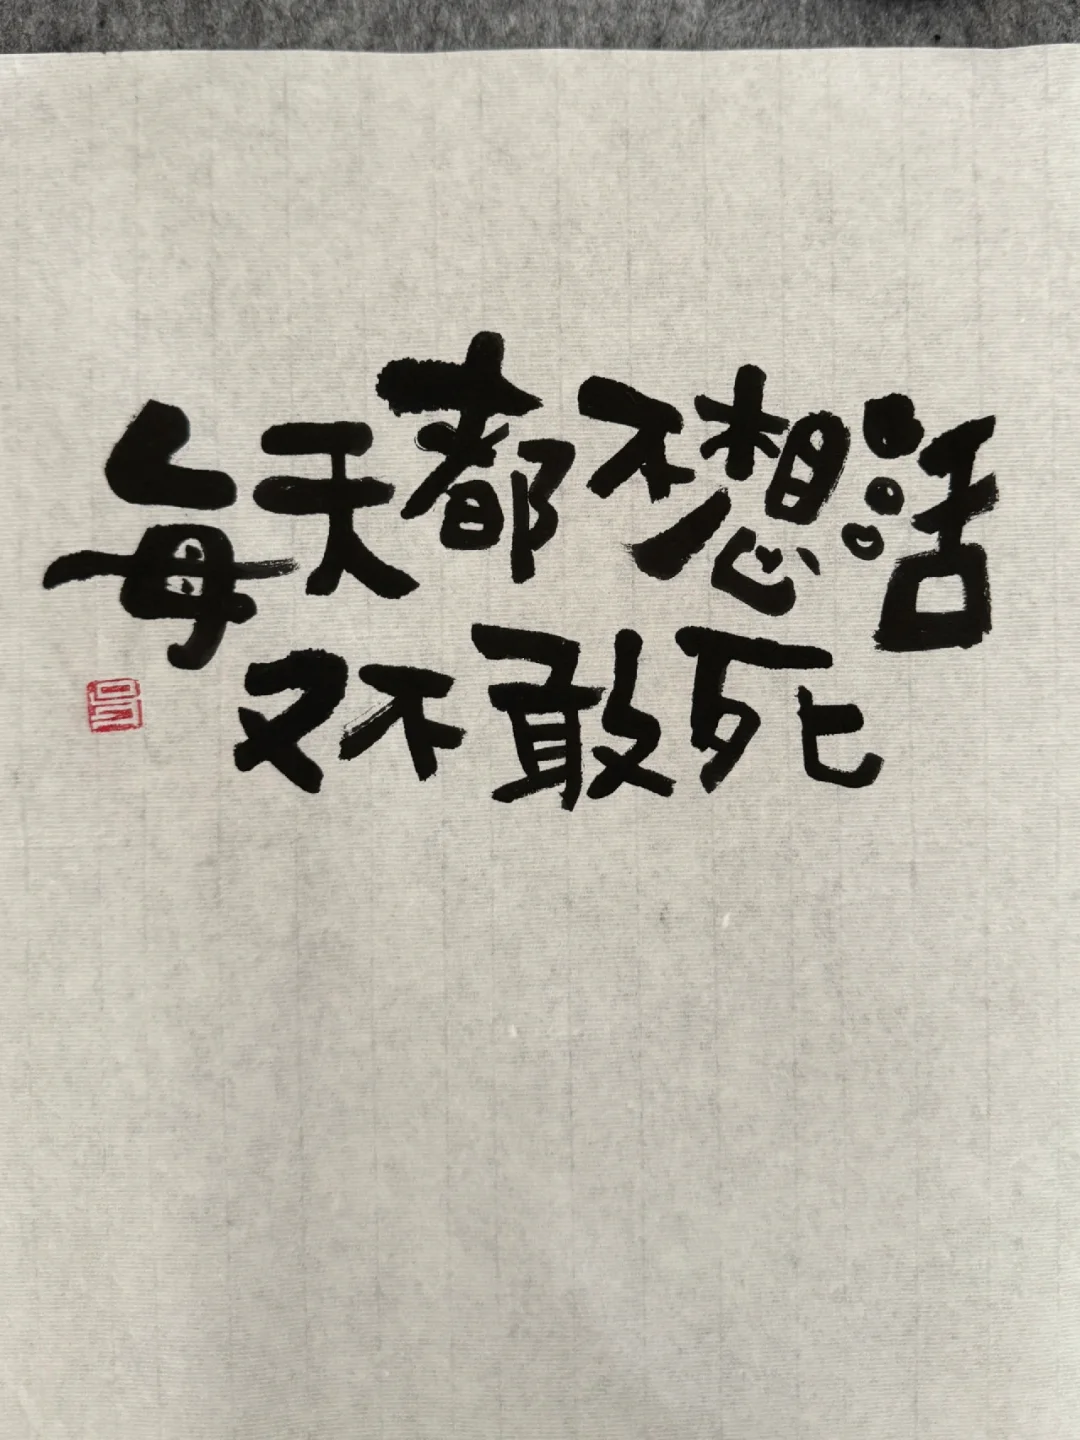 每天都不想活
又不敢死